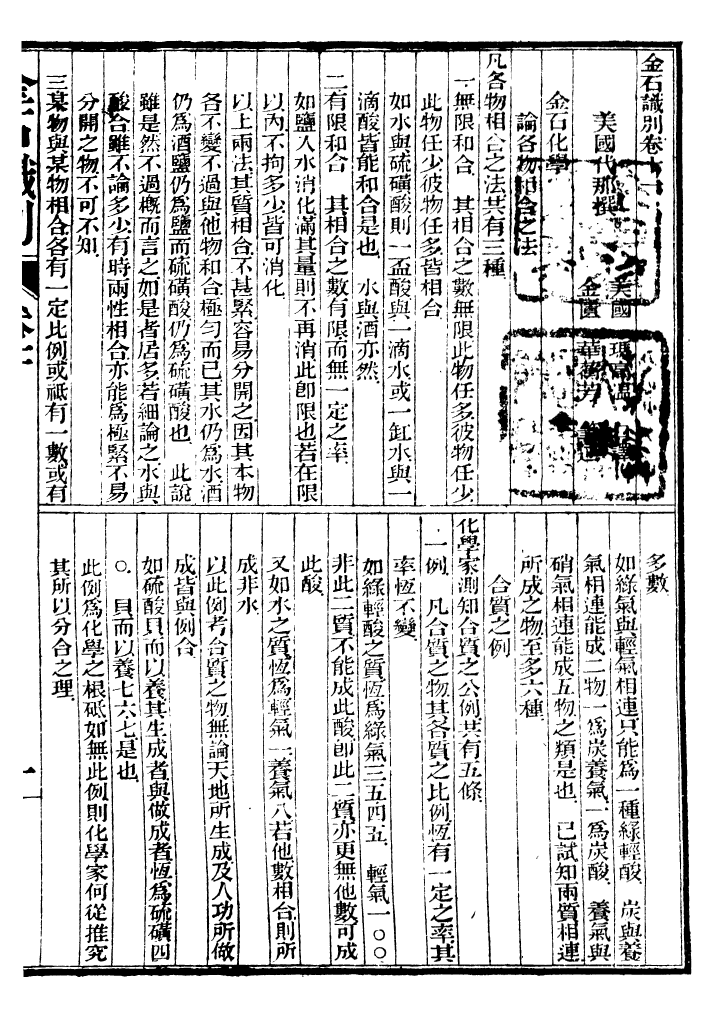 金石識別卷十一
美國代那撰
美國 瑪高溫
金匱 華蘅芳
金石化學
論各物和合之法
凡各物相合之法共有三種
一無限和合 其相合之數無限此物任多彼物任少
此物任少彼物任多皆相合
如水與硫磺酸則一盃酸與一滴水或一缸水與一
滴酸皆能和合是也 水與酒亦然
二有限和合 其相合之數有限而無一定之率
如鹽入水消化滿其量則不再消此卽限也若在限
以內不拘多少皆可消化
以上兩法其質相合不甚緊容易分開之因其本物
各不變不過與他物和合極勻而已其水仍爲水酒
仍爲酒鹽仍爲鹽而硫磺酸仍爲硫磺酸也 此說
雖是然不過概而言之如是者居多若細論之水與
酸合雖不論多少有時兩性相合亦能爲極緊不易
分開之物不可不知
三某物與某物相合各有一定比例或祗有一數或有
多數
如綠氣與輕氣相連只能爲一種綠輕酸 炭與養
氣相連能成二物一爲炭養氣一爲炭酸 養氣與
硝氣相連能成五物之類是也 已試知兩質相連
所成之物至多六種
合質之例
化學家測知合質之公例共有五條
一例 凡合質之物其各質之比例恆有一定之率其
率恆不變
如綠輕酸之質恆爲綠氣三五四五 輕氣一〇〇
非此二質不能成此酸卽此二質亦更無他數可成
此酸
又如水之質恆爲輕氣一養氣八若他數相合則所
成非水
以此例考合質之物無論天地所生成及人功所做
成皆與例合
如硫酸貝而以養其生成者與做成者恆爲硫磺四
〇 貝而以養七六七是也
此例爲化學之根砥如無此例則化學家何從推究
其所以分合之理
金石識別
卷十一
一